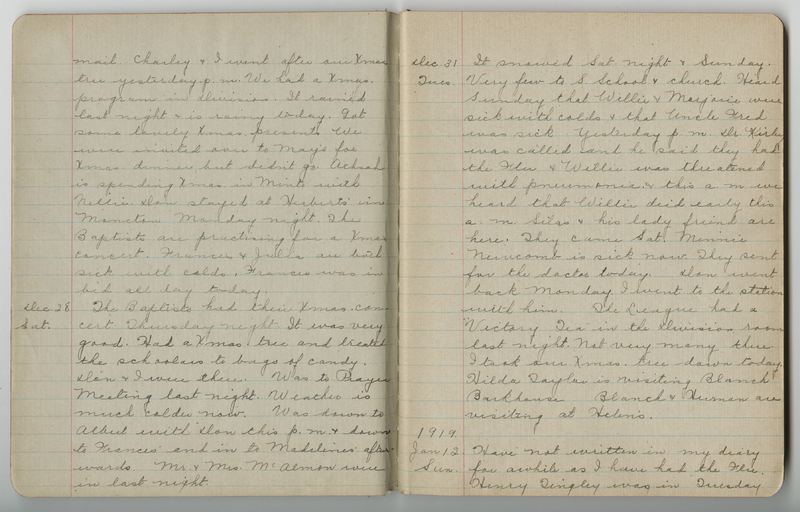 mail. Charley & I went after our Xmas
tree yesterday p.m. We had a Xmas.
program in division. It rained
last night & is rainy to-day. Got
some lovely Xmas presents. We
were invited over to May's for
Xmas dinner but didn't go. Achsah
is spending Xmas in Minto with
Nellie. Don stayed at Huberts' in
Moncton Monday night. The
Baptists are practising for a Xmas
concert. Frances & Julia are both
sick with colds. Frances was in
bid all day to-day.
Dec. 28 The Baptists had their Xmas. con-
Sat. cert Thursday night. It was very
good. Had a Xmas. tree and treated
the schoolars to bags of candy.
Don & I were there. Was to Prayer
Meeting last night. Weather is
much colder now. Was down to
Albert with Don this p.m. & down
to Frances' and in to Madeline's after-
wards. Mr. & Mrs. McAlmon were
in last night.
Dec 31 It snowed Sat. night & Sunday.
Tues. Very few to S School & church. Heard
Sunday that Willie & Marjorie were
sick with colds & that Uncle Fred
was sick Yesterday p.m. Dr. Kirby
was called and he said they had
the Flu & Willie was threatened
with pneumonia & this a m we
heard that Willie died early this
a. m. Silas & his lady friend are
here. They came Sat. Minnie
Newcomb is sick now. They sent
for the doctor to-day. Don went
back Monday. I went to the station
with him. The League had a
Victory Tea in the Division room
last night. Not very many there.
I took our Xmas. tree down today.
Hilda Taylor is visiting Blanch
Barkhouse Blanch & Human are
visiting at Helen's.
1919
Jan 12 Have not written in my diary
Sun. for awhile as I have had the Flu.
Henry Tingley was in Tuesday